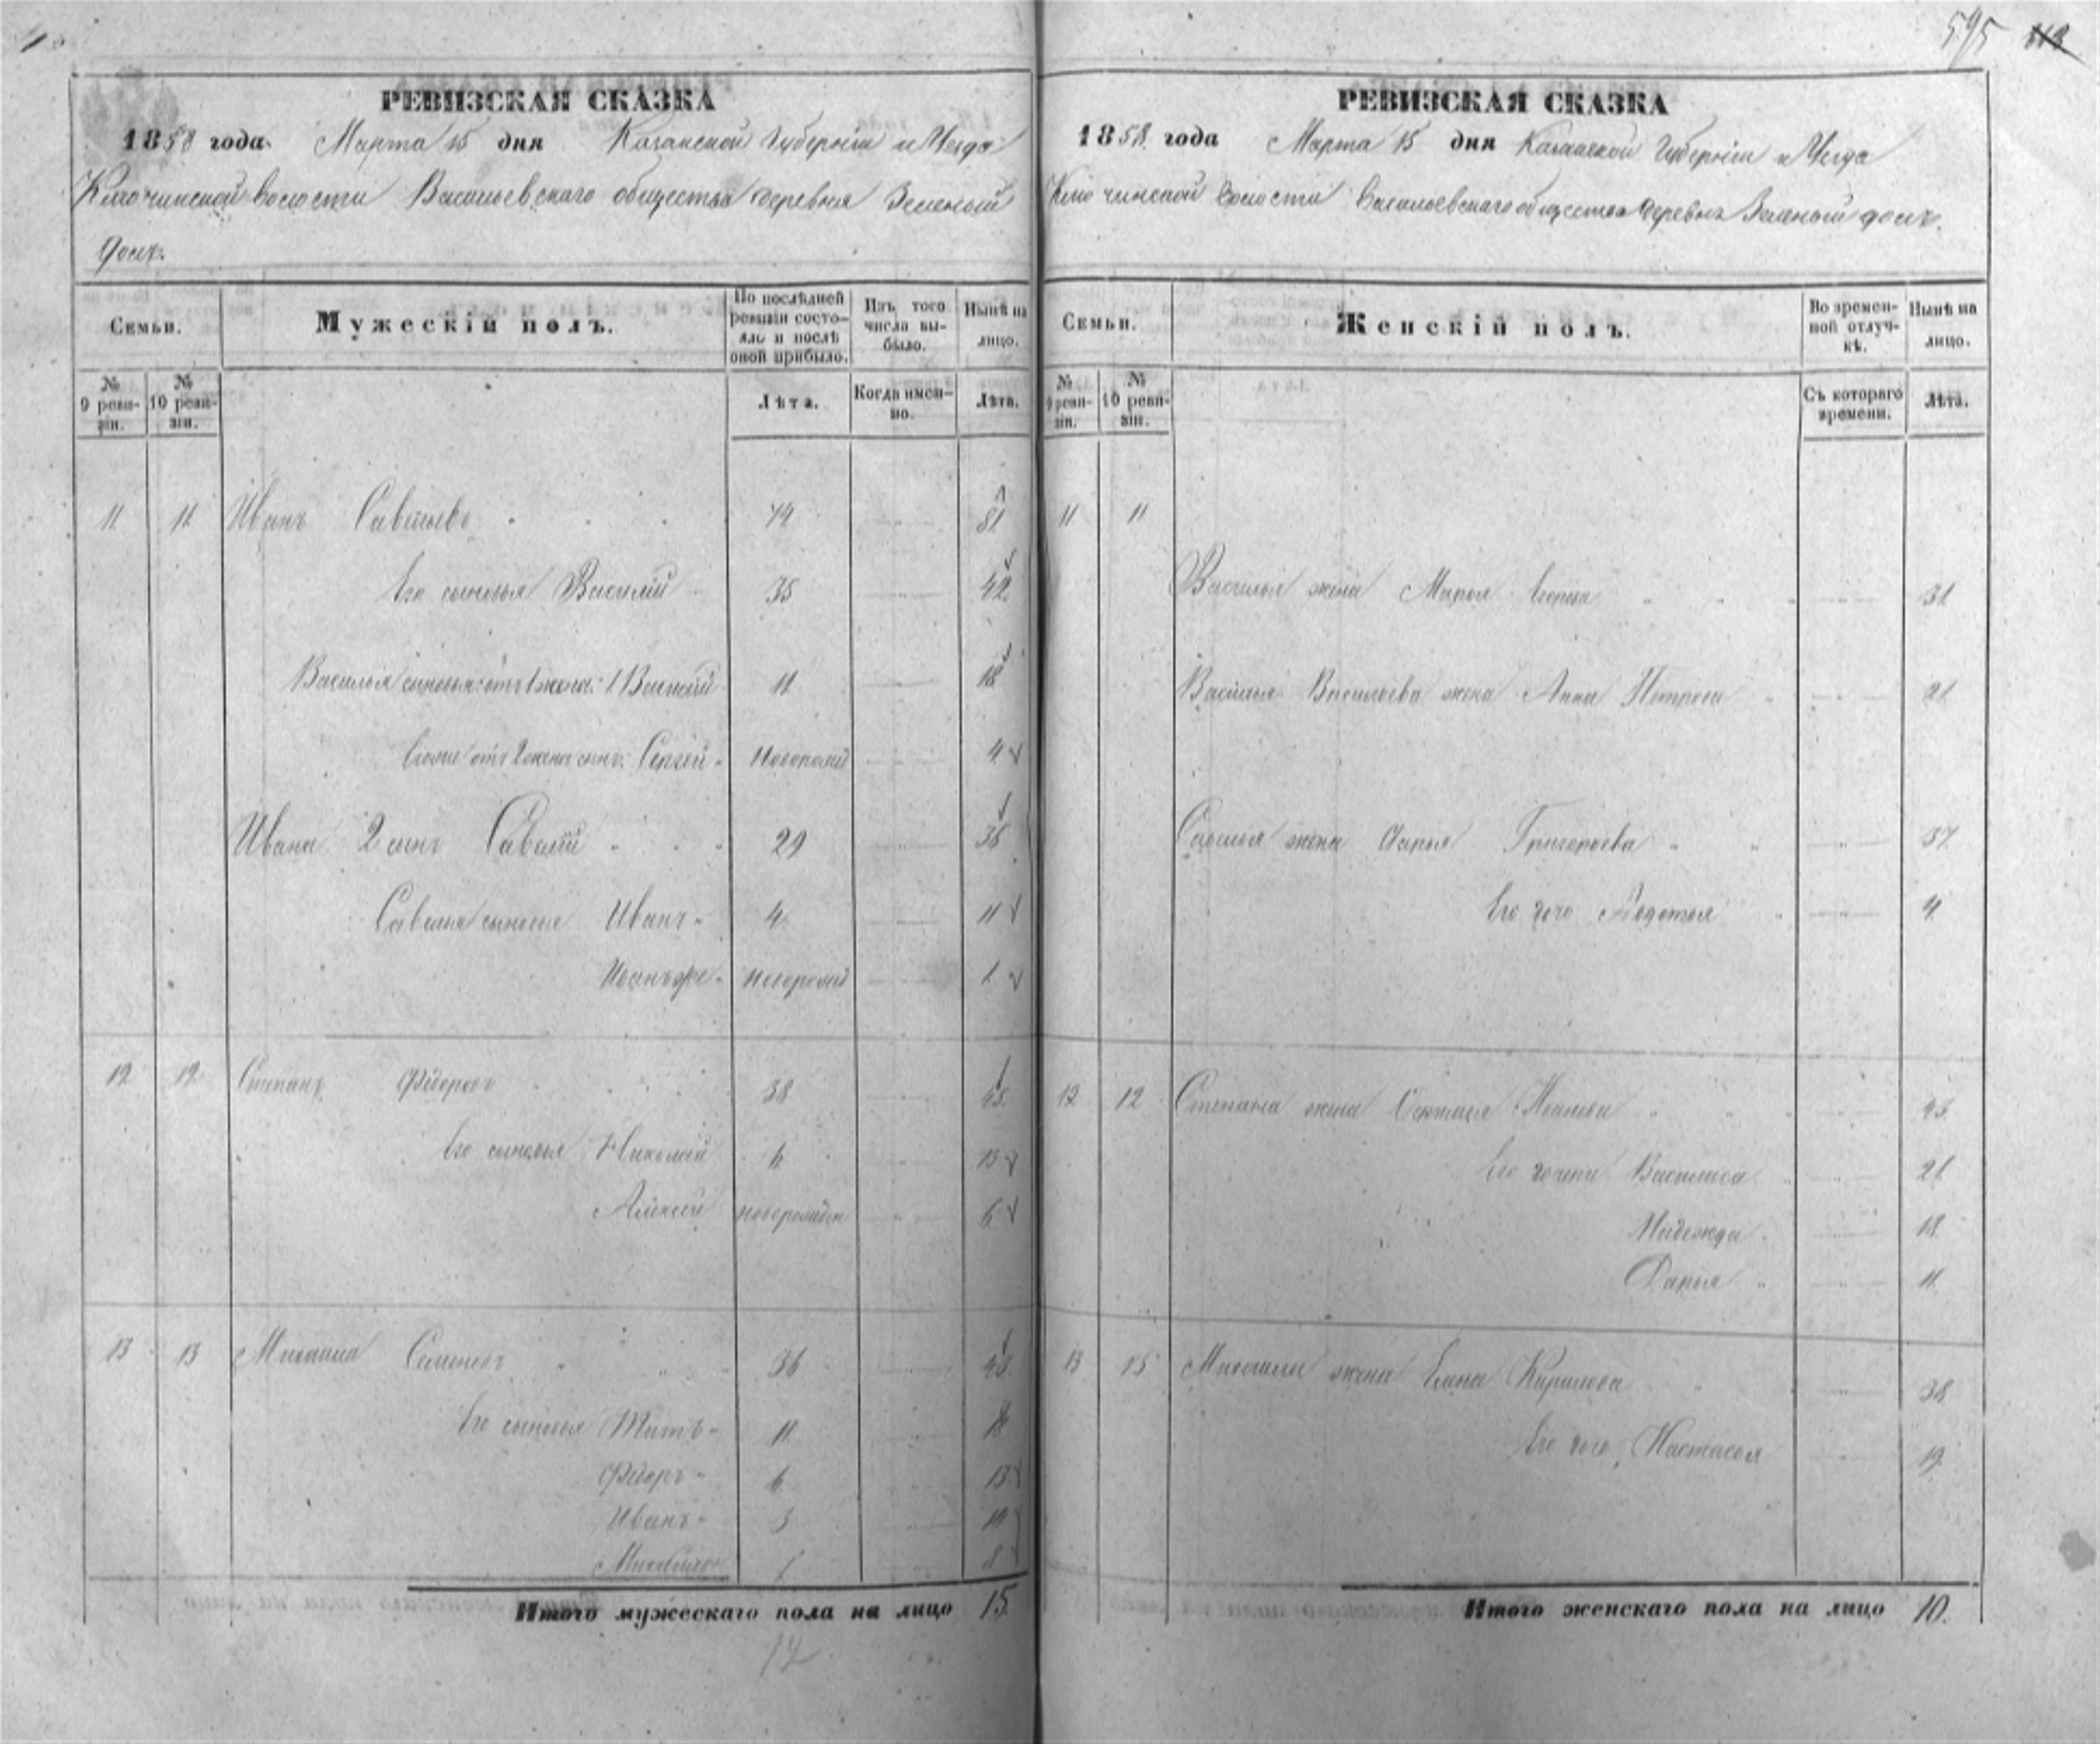 595 118
РЕВИЗСКАЯ СКАЗКА
1858 года Марта 15 дня Казанской Губерніи и Уезда
Ключинской волости Васильевскаго общества деревня Зеленый
Долъ.
Семьи.
Мужескій полъ.
По послѣдней ревизіи состояло и послѣ оной прибыло.
Изъ того числа выбыло.
Нынѣ на лицо.
№ 9 ревизіи.
№ 10 ревизіи.
Лѣта.
Когда именно.
Лѣта.
11 11 Иванъ Савельевъ 74 81
Его сыновья Василій 35 42
Василья сыновья: отъ 1 жены: 1 Василій 11 18
отъ 2 жены сынъ: Сергей новорож 4
Ивана 2 сынъ Савелій 29 36
Савелья сыновья Иванъ 4 11
Иванъ же новорож 1
12 12 Степанъ Федоровъ 38 45
Его сыновья Николай 6 13
Алексей новорожден 6
13 13 Михаила Семеновъ 36 43
Его сыновья Титъ 11 18
Федоръ 6 13
Иванъ 3 10
Михайло 1 8
Итого мужескаго пола на лицо 15.
12
РЕВИЗСКАЯ СКАЗКА
1858 года Марта 15 дня Казанской Губерніи и Уезда
Ключинской волости Васильевскаго общества деревня Зеленый долъ.
Семьи.
Женскій полъ.
Во временной отлучкѣ.
Нынѣ на лицо.
№ 9 ревизіи.
№ 10 ревизіи.
Съ котораго времени.
Лѣта.
11 11
Василья жена Марья Егорова 31
Василья Васильева жена Анна Петрова 21
Савелья жена Дарья Григорьева 37
Его дочь Авдотья 4
12 12 Степана жена Иванова 45
Его дочери Василиса 21
Надежда 18
Дарья 11
13 13 Михаилы жена Елена Кирилова 38
Его дочь Настасья 19
Итого женскаго пола на лицо 10.